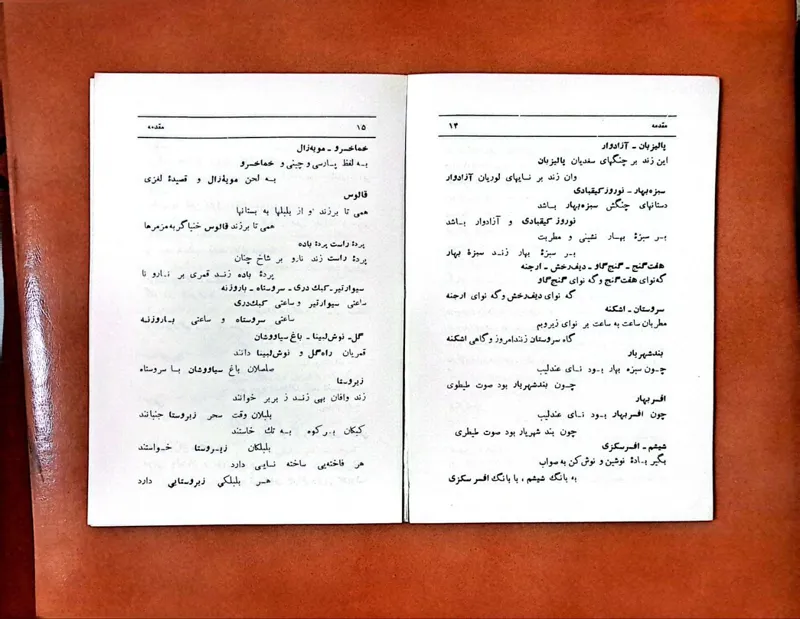 مقدمه ۱۴
پالیزبان ـ آزادوار
این زند بر چنگهای سغدیان پالیزبان
وان زند بر نایهای لوریان آزادوار
سبزه‌بهار ـ نوروز کیقبادی
دستانهای چنگش سبزه‌بهار باشد
نوروز کیقبادی و آزادوار باشد
بر سبزهٔ بهار نشینی و مطربت
بر سبزهٔ بهار زند سبزهٔ بهار
هفت‌گنج ـ گنج‌گاو ـ دیف‌رخش ـ ارجنه
گه‌نوای هفت‌گنج و گه نوای گنج‌گاو
گه نوای دیف‌رخش و گه نوای ارجنه
سروستان ـ اشکنه
مطربان ساعت به ساعت بر نوای زیروبم
گاه سروستان زنند امروز و گاهی اشکنه
بندشهریار
چون سبزه بهار بود نای عندلیب
چون بندشهریار بود صوت طیطوی
افسربهار
چون افسربهار بود نای عندلیب
چون بند شهریار بود صوت طیطری
شیشم ـ افسرسکزی
بگیر بادهٔ نوشین و نوش کن به صواب
به بانگ شیشم ، با بانگ افسر سکزی
۱۵ مقدمه
خماخسرو ـ مویه‌زال
به لفظ پارسی و چینی و خماخسرو
به لحن مویهٔ زال و قصیدهٔ لغزی
قالوس
همی تا برزند از بلبلها به بستانها
همی تا برزند قالوس خنیاگر به مزمرها
پردهٔ راست پردهٔ باده
پردهٔ راست زند نارو بر شاخ چنان
پردهٔ باده زند قمری بر نارو تا
سیوارتیر ـ کبك دری ـ سروستاه ـ باروزنه
ساعتی سیوارتیر و ساعتی کبك‌دری
ساعتی سروستاه و ساعتی باروزنه
گل ـ نوش‌لبینا ـ باغ سیاووشان
قمریان راه‌گل و نوش‌لبینا دانند
صلصلان باغ سیاووشان با سروستاه
زیرروستا
زند وافان بهی زند ز بربر خوانند
بلبلان وقت سحر زیرروستا جنبانند
کبکان بر کوه به تك خاستند
بلبلکان زیرروستا خواستند
هر فاخته‌یی ساخته نایی دارد
هر بلبلکی زیرروستایی دارد